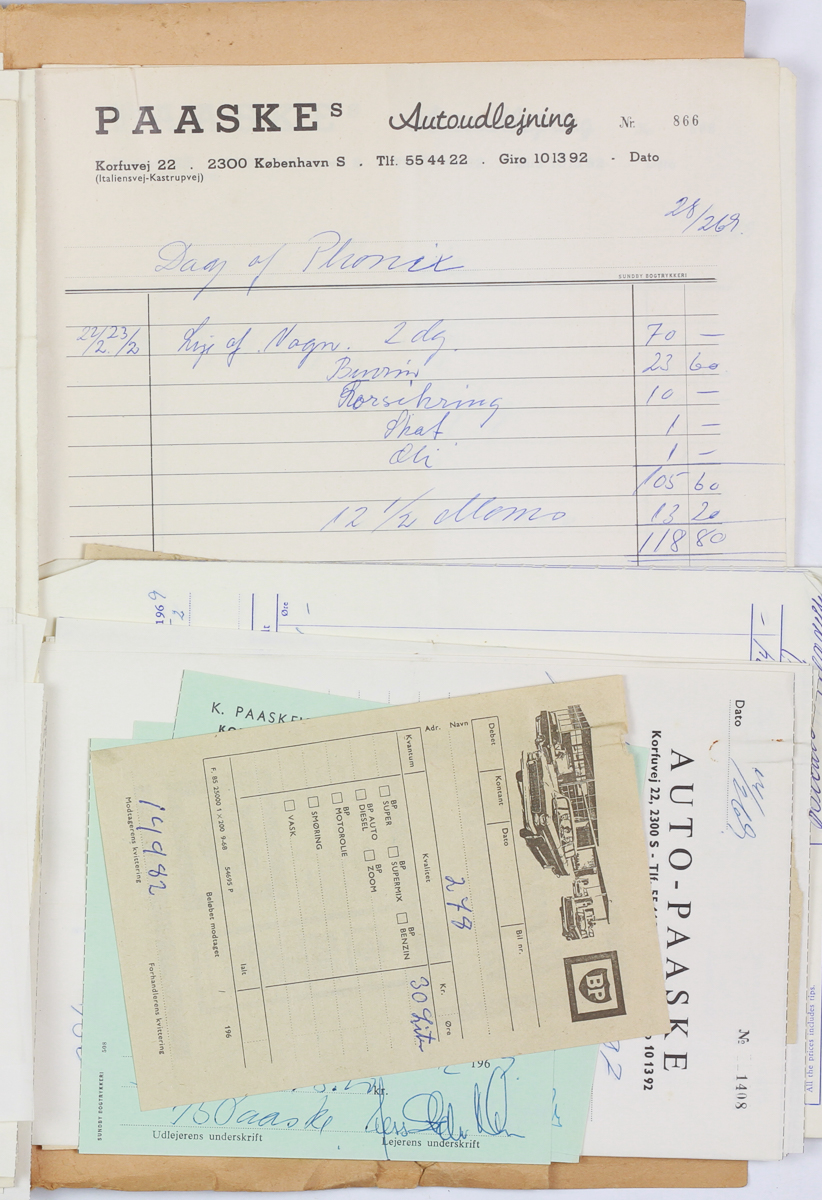 PAASKEs Autoudlejning Nr. 866
Korfuvej 22 . 2300 København S . Tlf. 55 44 22 . Giro 101392 - Dato
(Italiensvej-Kastrupvej)
28/269.
Dag of Phonix
SUNDBY BOGTRYKKERI
22/2 23/2 Leje af Vogn. 2 dg. 70 —
Benzin 23 60
Forsikring 10 —
Skat 1 —
Oli 1 —
105 60
12 1/2 Moms 13 20
118 80
1969
Øre
K. PAASKE
Dato
AUTO-PAASKE
Korfuvej 22, 2300 S - Tlf. 55
101392
№ 1408
All the prices includes tips.
BP
Debet Kontant Dato Bil nr.
Navn
Adr.
278
Kvantum Kvalitet Kr. Øre
30 Liter
BP SUPER
BP SUPERMIX
BP BENZIN
BP AUTO DIESEL
BP ZOOM
BP MOTOROLIE
SMØRING
VASK
Ialt
F. 85 25000 1 x 200 9-68 54695 P
Beløbet modtaget / 196
14982
Modtagerens kvittering Forhandlerens kvittering
196
kr.
Paaske
Udlejerens underskrift Lejerens underskrift
SUNDBY BOGTRYKKERI